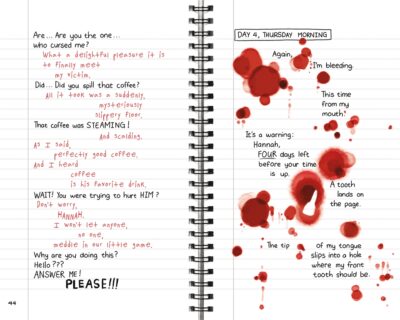 Are... Are you the one...
who cursed me?
What a delightful pleasure it is
to finally meet
my victim.
Did... Did you spill that coffee?
All it took was a suddenly,
mysteriously
slippery floor.
That coffee was STEAMING!
And scalding.
As I said,
perfectly good coffee.
And I heard
coffee
is his favorite drink.
WAIT! You were trying to hurt HIM?
Don't worry,
HANNAH.
I won't let anyone,
no one,
meddle in our little game.
Why are you doing this?
Hello???
ANSWER ME!
PLEASE!!!
44
DAY 4, THURSDAY MORNING
Again,
I'm bleeding.
This time
from my
mouth.
It's a warning:
Hannah,
FOUR days left
before your time
is up.
A tooth
lands on
the page.
The tip of my tongue
slips into a hole
where my front
tooth should be.